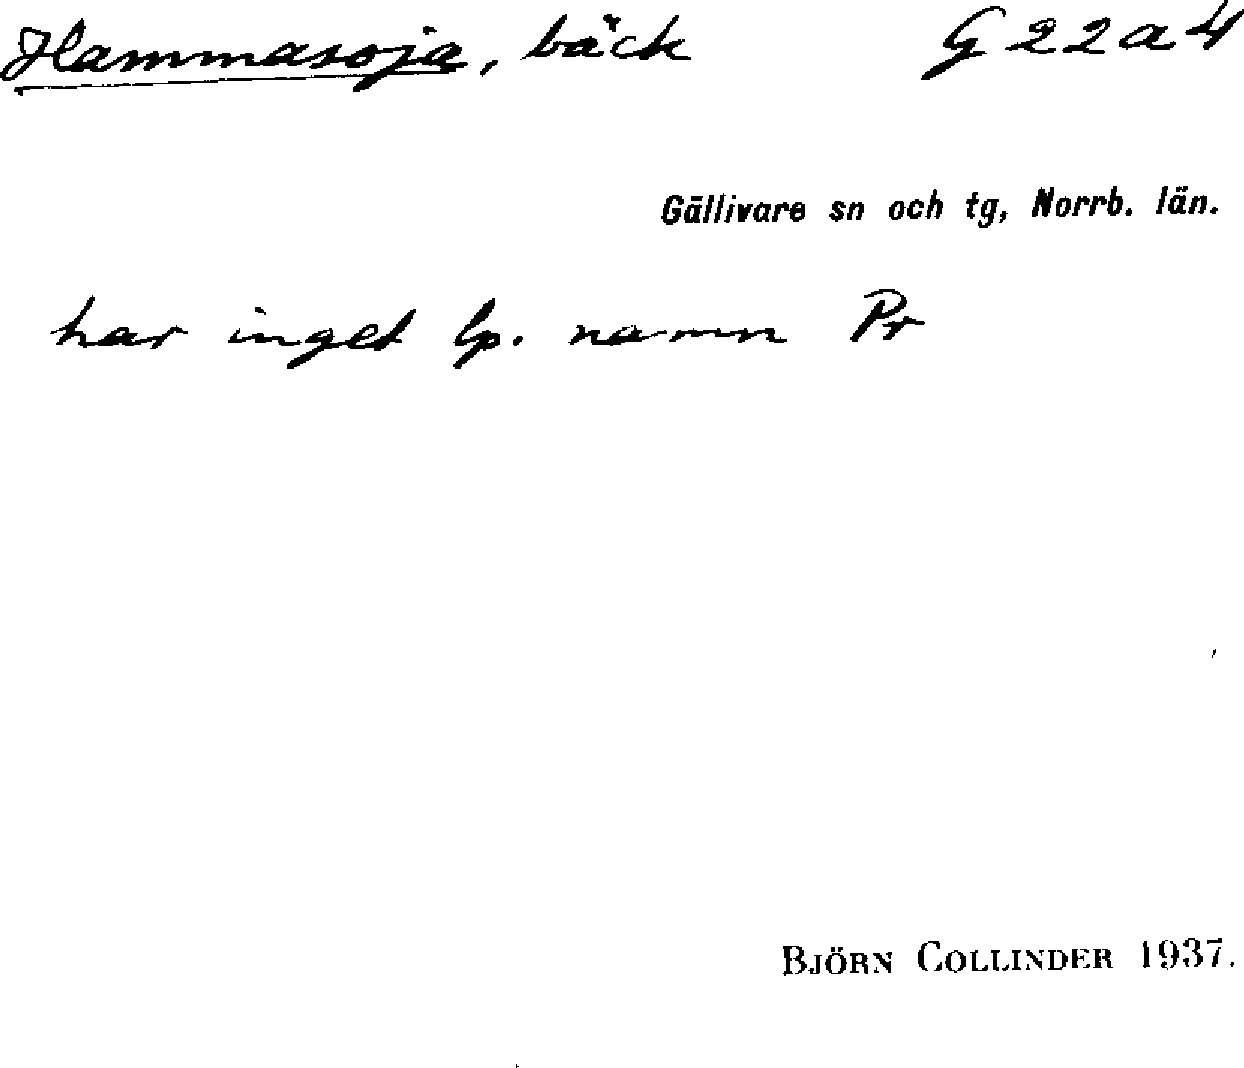 Hammasoja, bäck G22a4
Gällivare sn och tg, Norrb. län.
har inget lp. namn Pr
BJÖRN COLLINDER 1937.